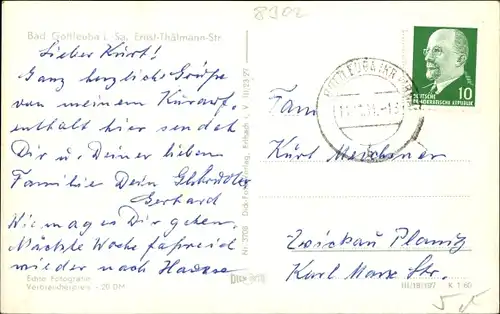 8302
Bad Gottleuba i. Sa. Ernst-Thälmann-Str.
Lieber Kurt!
Ganz herzliche Grüße
von meinem Kurauf-
enthalt hier sendet
Dir u. Deiner lieben
Familie Dein
Gerhard
Wie mag es Dir gehen.
Nächste Woche
wieder nach Hause
Echte Fotografie
Verbraucherpreis -20 DM
Nr. 3708 Dick-Foto-Verlag, Erlbach i. V.
10
DEUTSCHE
DEMOKRATISCHE REPUBLIK
Fam
Kurt
Zwickau Planitz
Karl Marx Str.
III/18/197 K 1 60